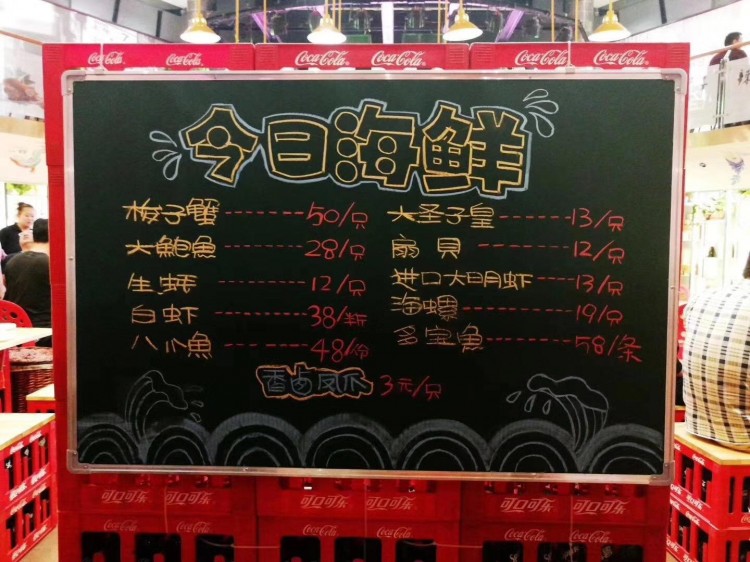 Coca-Cola Coca-Cola Coca-Cola Coca-Cola Coca-Cola Coca-Cola
今日海鲜
梭子蟹 50/只
大鲍鱼 28/只
生蚝 12/只
白虾 38/斤
八爪鱼 48/份
大圣子皇 13/只
扇贝 12/只
进口大明虾 13/只
海螺 19/只
多宝鱼 58/条
香卤凤爪 3元/只
可口可乐 可口可乐 可口可乐 可口可乐 可口可乐
Coca-Cola Coca-Cola Coca-Cola Coca-Cola Coca-Cola Coca-Cola